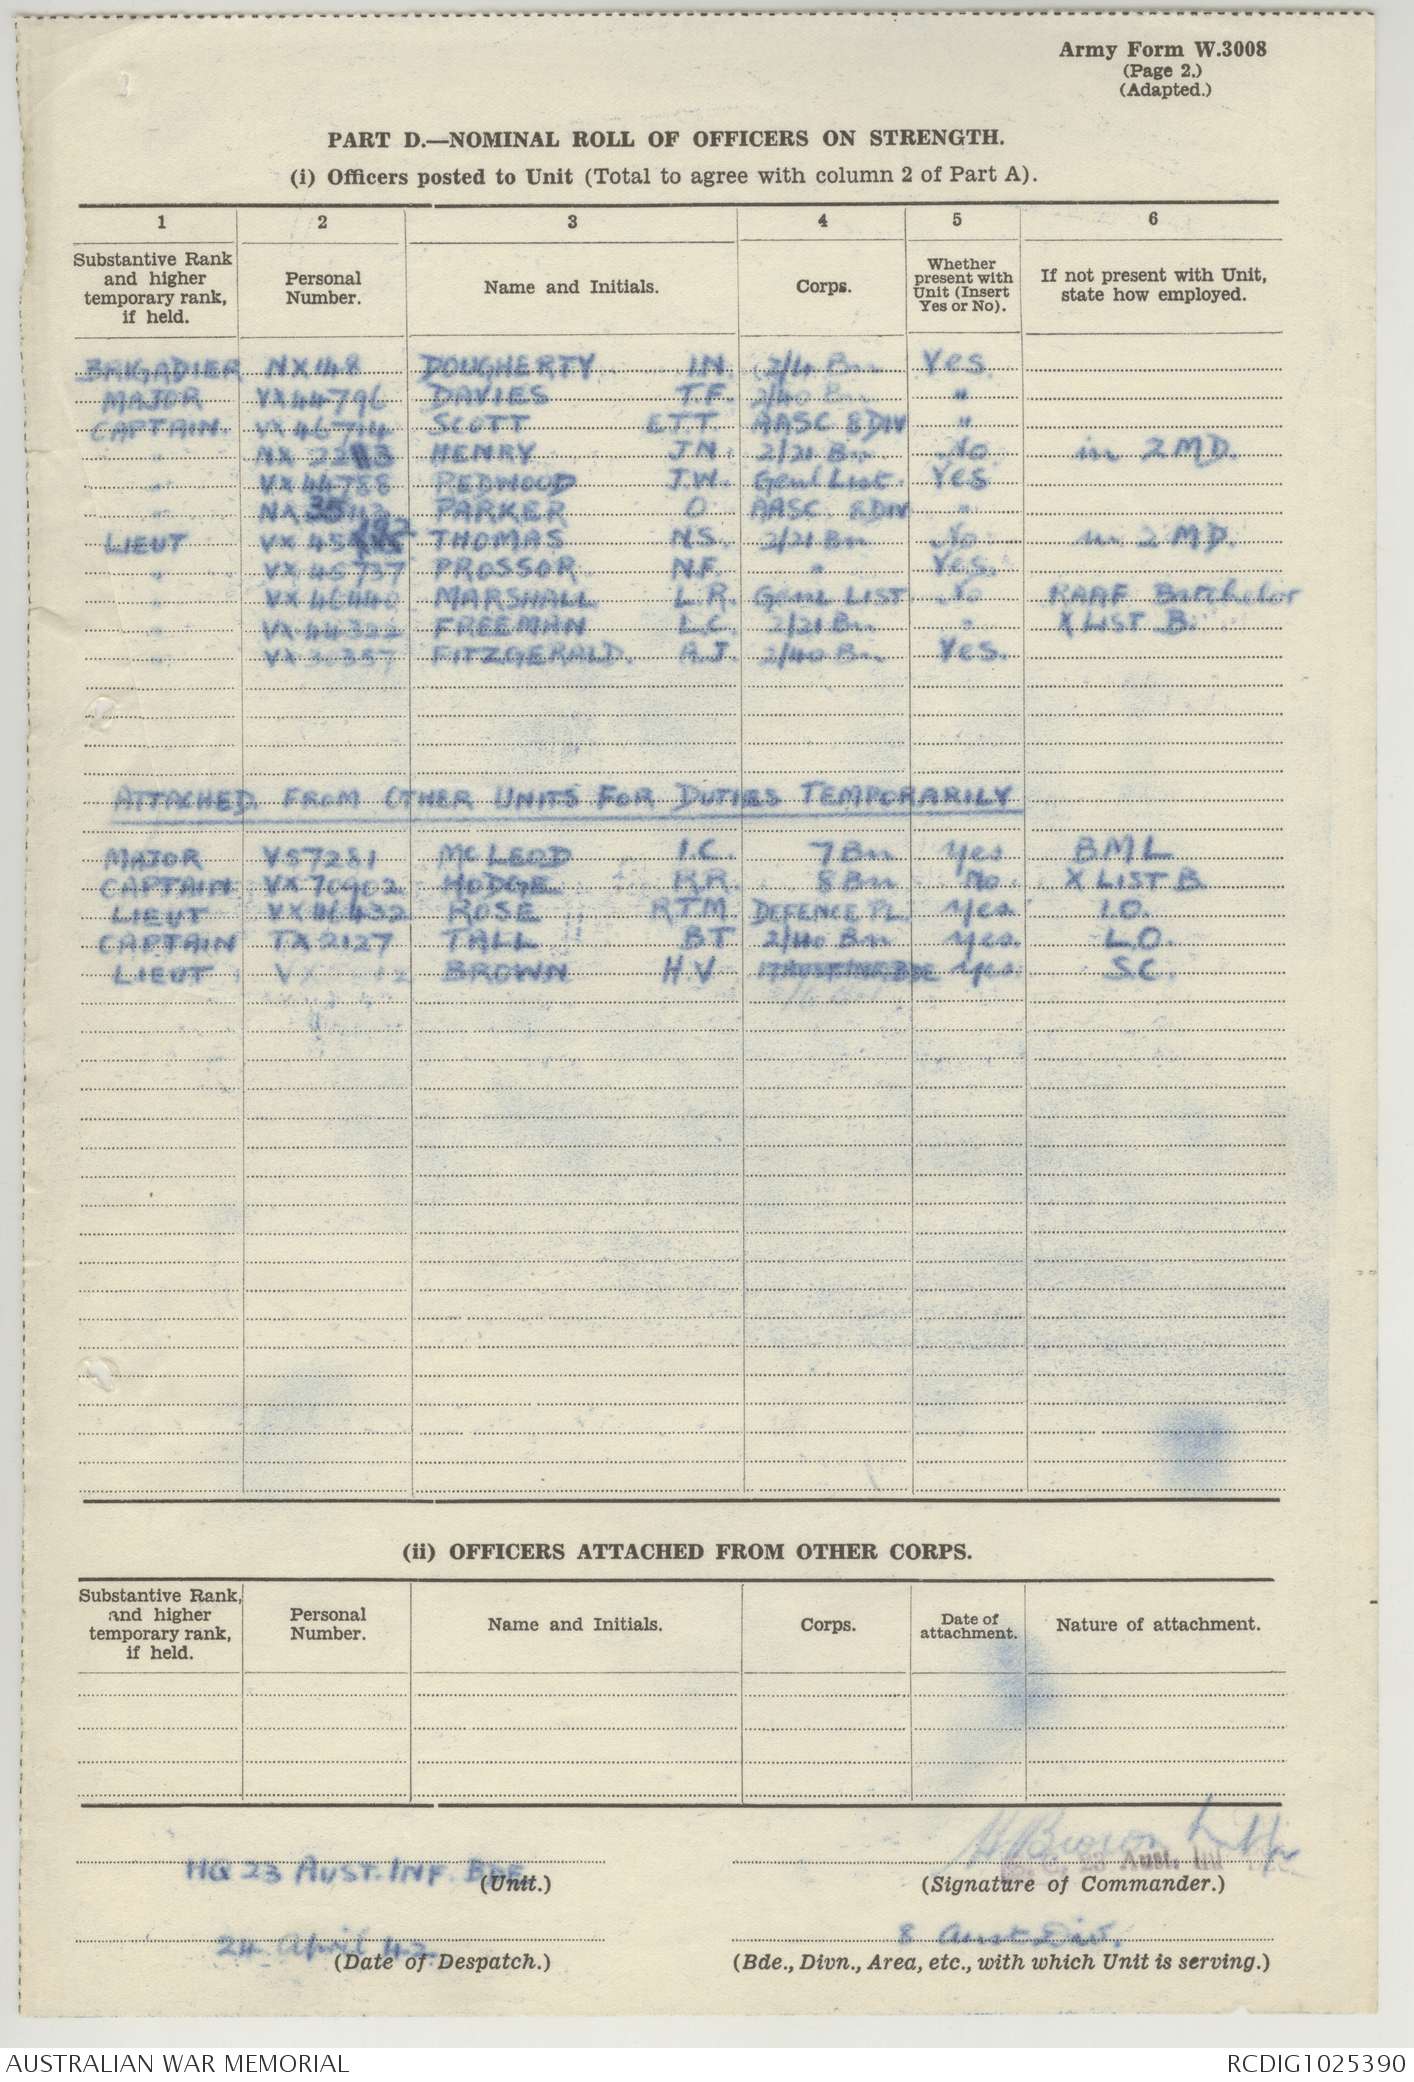 Army Form W.3008
(Page 2.)
(Adapted.)
PART D.—NOMINAL ROLL OF OFFICERS ON STRENGTH.
(i) Officers posted to Unit (Total to agree with column 2 of Part A).
1 2 3 4 5 6
Substantive Rank and higher temporary rank, if held. Personal Number. Name and Initials. Corps. Whether present with Unit (Insert Yes or No). If not present with Unit, state how employed.
BRIGADIER NX148 DOUGHERTY I.N. 2/4 Bn Yes
MAJOR VX44796 DAVIES T.F. 2/40 Bn "
CAPTAIN. VX46714 SCOTT E.T.T. AASC 8 DIV "
" NX HENRY J.N. 2/21 Bn No in 2 M.D.
" VX44788 REDWOOD J.W. Genl List. Yes
" PARKER O AASC. 8 DIV "
LIEUT THOMAS N.S. 2/21 Bn No in 2 M.D.
" VX46737 PROSSOR N.F. " Yes.
" VX46440 MARSHALL L.R. Genl LIST No RAAF Batchelor
" VX44322 FREEMAN L.C. 2/21 Bn " X LIST B.
" VX30357 FITZGERALD. A.J. 2/40 Bn Yes.
ATTACHED FROM OTHER UNITS FOR DUTIES TEMPORARILY
MAJOR V57281 McLEOD I.C. 7 Bn Yes BML
CAPTAIN VX70902 HODGE K.R. 8 Bn No X LIST B
LIEUT VX46432 ROSE RTM DEFENCE PL. Yes I.O.
CAPTAIN TX2127 TALL BT 2/40 Bn Yes L.O.
LIEUT BROWN H.V Yes S.C.
(ii) OFFICERS ATTACHED FROM OTHER CORPS.
Substantive Rank, and higher temporary rank, if held. Personal Number. Name and Initials. Corps. Date of attachment. Nature of attachment.
HQ 23 AUST. INF. BDE
(Unit.)
H Brown
23 Aust. Inf
(Signature of Commander.)
24 April 42
(Date of Despatch.)
8 Aust Div.
(Bde., Divn., Area, etc., with which Unit is serving.)
AUSTRALIAN WAR MEMORIAL
RCDIG1025390